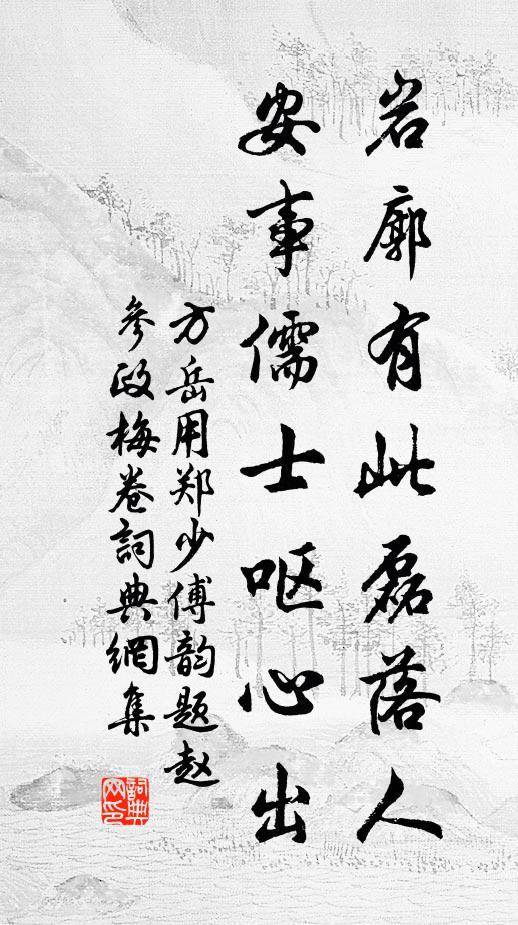 岩廓有此磊落人
安事儒士呕心出
方岳用郑少傅韵题赵
參政梅卷詞典網集
詞典网印